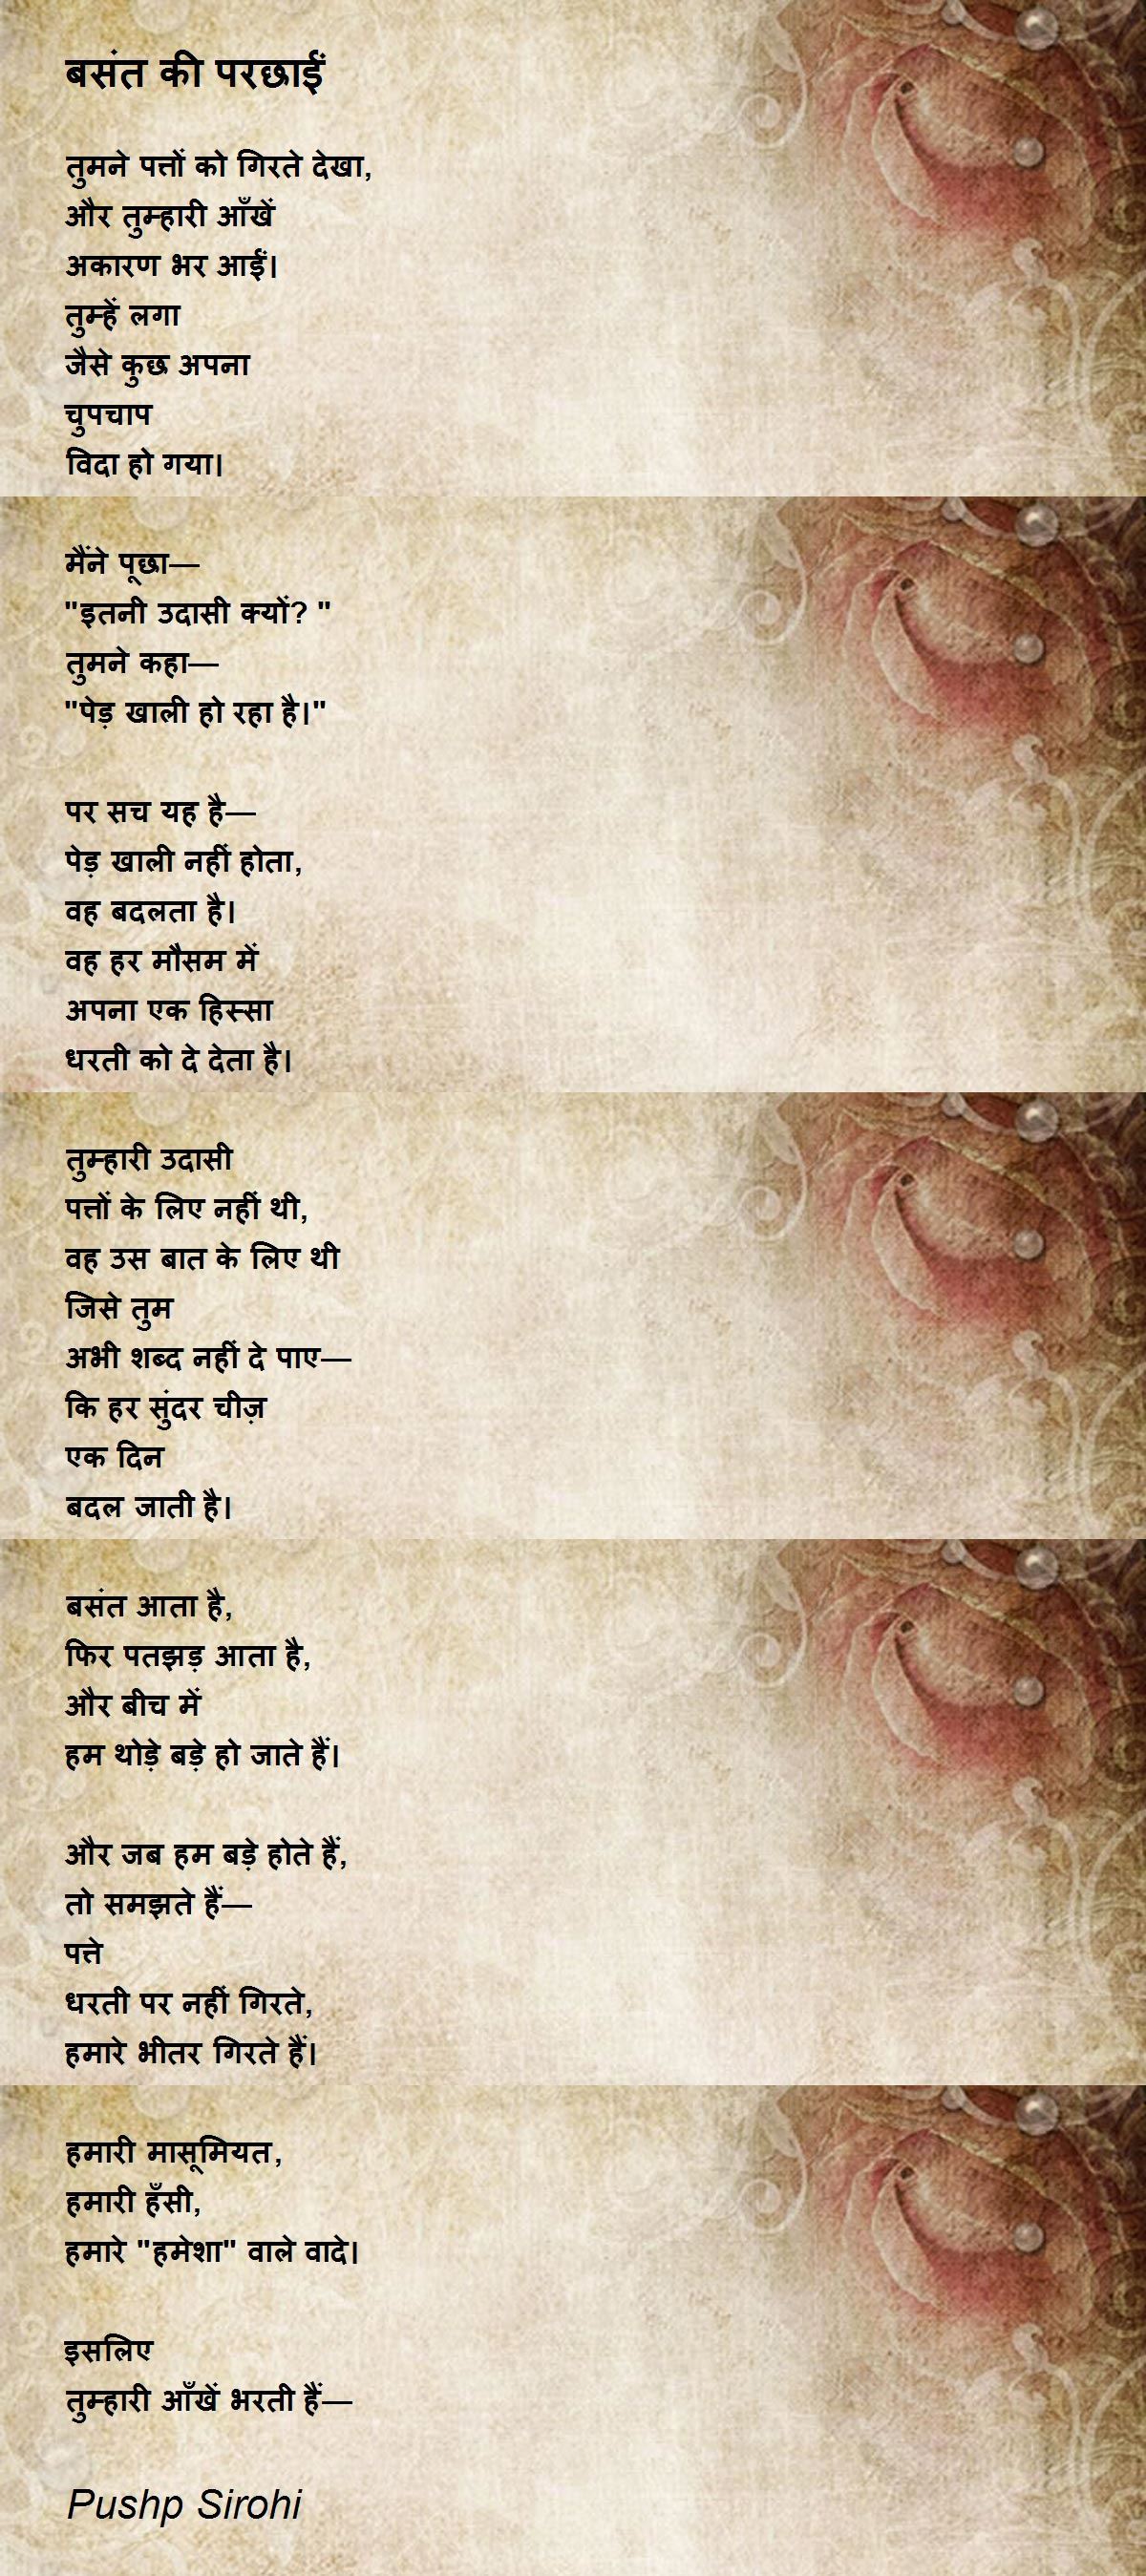 बसंत की परछाईं
तुमने पत्तों को गिरते देखा,
और तुम्हारी आँखें
अकारण भर आईं।
तुम्हें लगा
जैसे कुछ अपना
चुपचाप
विदा हो गया।
मैंने पूछा—
"इतनी उदासी क्यों? "
तुमने कहा—
"पेड़ खाली हो रहा है।"
पर सच यह है—
पेड़ खाली नहीं होता,
वह बदलता है।
वह हर मौसम में
अपना एक हिस्सा
धरती को दे देता है।
तुम्हारी उदासी
पत्तों के लिए नहीं थी,
वह उस बात के लिए थी
जिसे तुम
अभी शब्द नहीं दे पाए—
कि हर सुंदर चीज़
एक दिन
बदल जाती है।
बसंत आता है,
फिर पतझड़ आता है,
और बीच में
हम थोड़े बड़े हो जाते हैं।
और जब हम बड़े होते हैं,
तो समझते हैं—
पत्ते
धरती पर नहीं गिरते,
हमारे भीतर गिरते हैं।
हमारी मासूमियत,
हमारी हँसी,
हमारे "हमेशा" वाले वादे।
इसलिए
तुम्हारी आँखें भरती हैं—
Pushp Sirohi